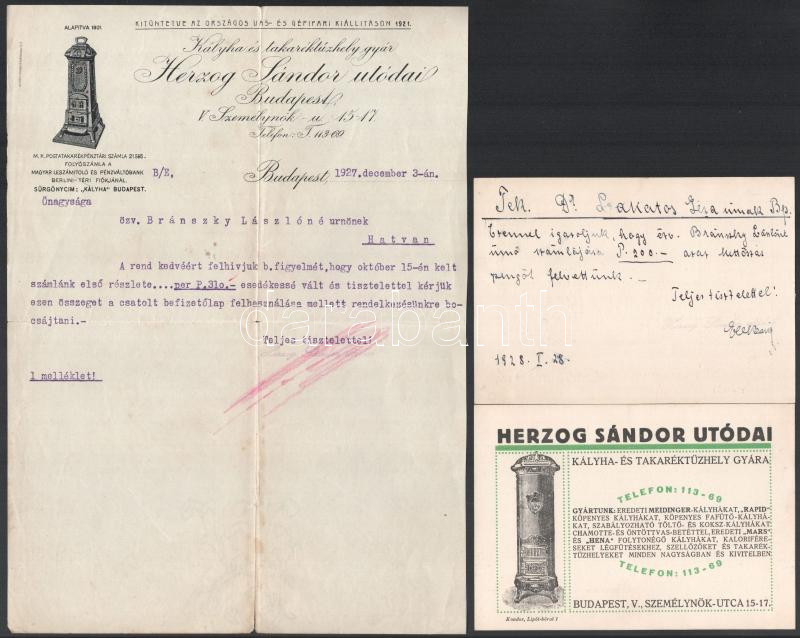 KITÜNTETVE AZ ORSZÁGOS VAS- ÉS GÉPIPARI KIÁLLITÁSON 1921.
ALAPITVA 1901.
Kályha és takaréktűzhely gyár
Herzog Sándor utódai
Budapest,
V. Személynök-u. 15-17.
Telefon: T. 113-69
M. K. POSTATAKARÉKPÉNZTÁRI SZÁMLA 21.516.
FOLYÓSZÁMLA A
MAGYAR LESZÁMITOLÓ ÉS PÉNZVÁLTÓBANK
BERLINI-TÉRI FIÓKJÁNÁL.
SÜRGÖNYCIM: „KÁLYHA" BUDAPEST.
B/E.
Budapest, 1927.december 3-án.
Önagysága
özv. Bránszky Lászlóné urnönek
Hatvan
A rend kedvéért felhivjuk b.figyelmét,hogy október 15-én kelt
számlánk első részlete....per P.31o.- esedékessé vált és tisztelettel kérjük
ezen összeget a csatolt befizetőlap felhasználása mellett rendelkezésünkre bo-
csájtani.-
Teljes tisztelettel:
1 melléklet!
Tek. Dr Lakatos Géza úrnak Bp.
Ezennel igazoljuk, hogy özv. Bránszky Lászlóné
úrnő számlájára P. 200.- azaz kettőszáz
pengőt felvettünk.-
Teljes tisztelettel:
1928. I. 28.
HERZOG SÁNDOR UTÓDAI
KÁLYHA- ÉS TAKARÉKTŰZHELY GYÁRA
TELEFON: 113-69
GYÁRTUNK: EREDETI MEIDINGER-KÁLYHÁKAT, „RAPID"-
KÖPENYES KÁLYHÁKAT, KÖPENYES FAFŰTŐ-KÁLYHÁ-
KAT, SZABÁLYOZHATÓ TÖLTŐ- ÉS KOKSZ-KÁLYHÁKAT
CHAMOTTE- ÉS ÖNTÖTTVAS-BETÉTTEL, EREDETI „MARS"
ÉS „HENA" FOLYTONÉGŐ KÁLYHÁKAT, KALORIFÉRE-
SEKET LÉGFŰTÉSEKHEZ, SZELLŐZŐKET ÉS TAKARÉK-
TŰZHELYEKET MINDEN NAGYSÁGBAN ÉS KIVITELBEN
TELEFON: 113-69
BUDAPEST, V., SZEMÉLYNÖK-UTCA 15-17.
Kondor, Lipót-körut 1
darabanth